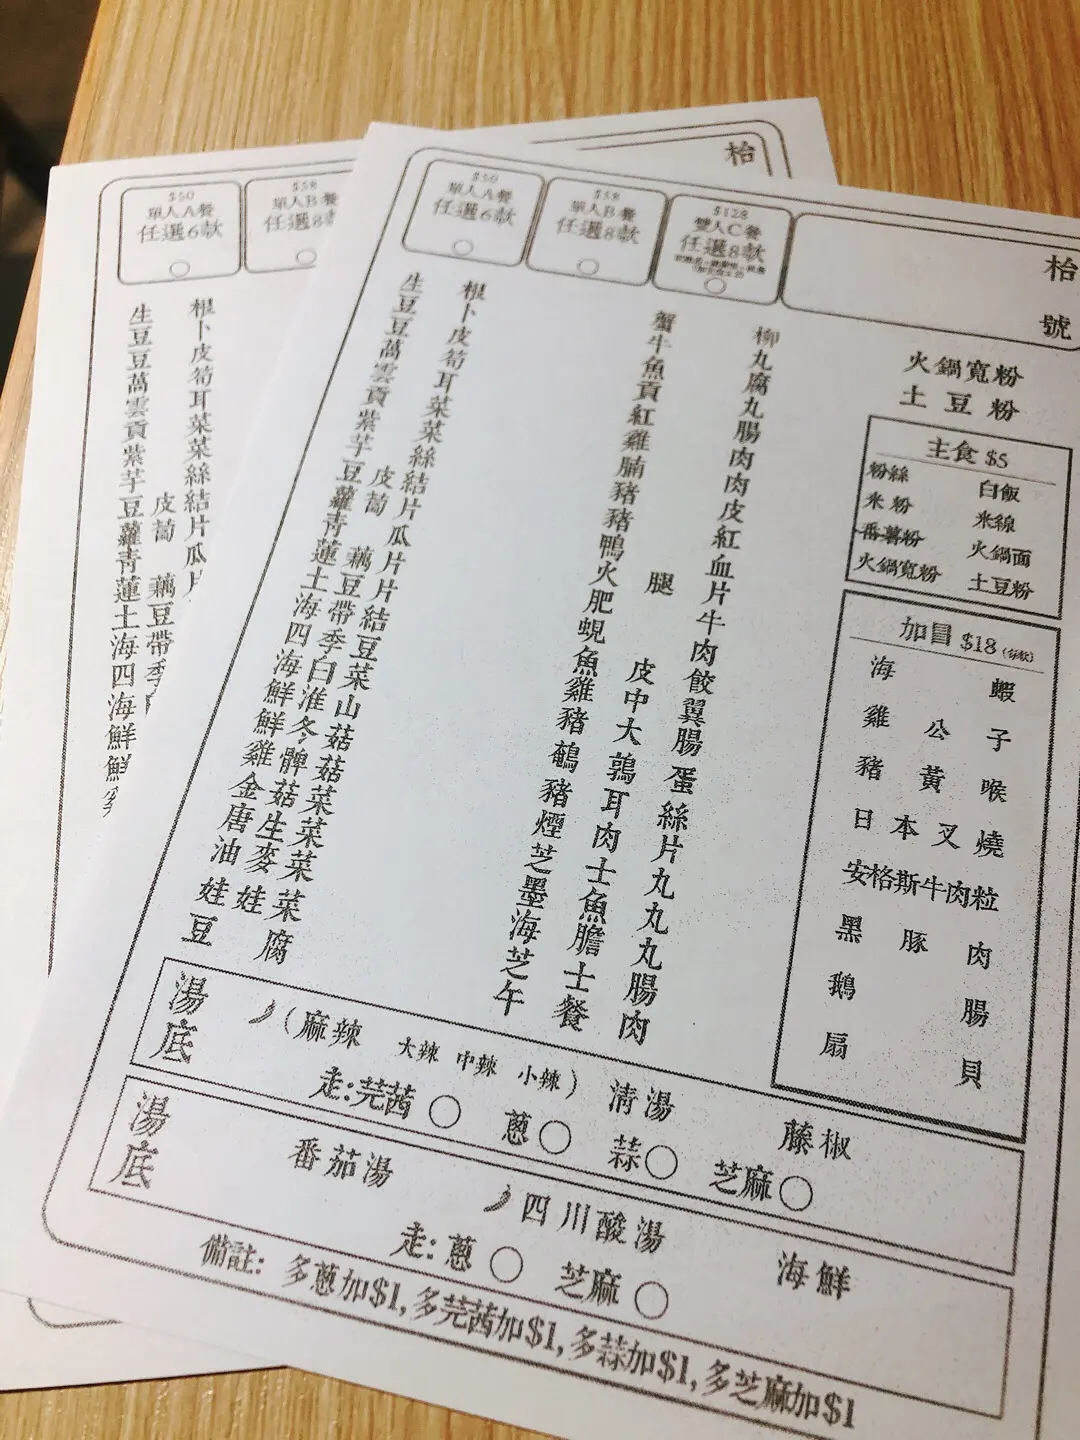 枱
$50
單人A餐
任選6款
$58
單人B餐
任選8款
$50
單人A餐
任選6款
$58
單人B餐
任選8款
$128
雙人C餐
任選8款
枱
號
生根
豆卜
豆皮
萵筍
雲耳
貢菜
紫菜
芋絲
豆皮結
蘿蔔片
青瓜
蓮藕片
土豆片
海帶結
四季豆
海白菜
鮮淮山
鮮冬菇
雞髀菇
金菇菜
唐生菜
油麥菜
娃娃菜
豆腐
蟹柳
牛丸
魚腐
貢丸
紅腸
雞肉
腩肉
豬皮
豬紅
鴨血
火腿片
肥牛
蜆肉
魚皮餃
雞中翼
豬大腸
鵪鶉蛋
豬耳絲
煙肉片
芝士丸
墨魚丸
海膽丸
芝士腸
午餐肉
火鍋寬粉
土豆粉
主食 $5
粉絲 白飯
米粉 米線
番薯粉 火鍋面
火鍋寬粉 土豆粉
加冒 $18
海蝦
雞公子
豬黃喉
日本叉燒
安格斯牛肉粒
黑豚肉
鵝腸
扇貝
湯底 (麻辣 大辣 中辣 小辣) 清湯 藤椒
走:芫茜 蔥 蒜 芝麻
湯底 番茄湯 四川酸湯 海鮮
走:蔥 芝麻
備註: 多蔥加$1,多芫茜加$1,多蒜加$1,多芝麻加$1
生根
豆卜
豆皮
萵筍
雲耳
貢菜
紫菜
芋絲
豆皮結
蘿蔔片
青瓜
蓮藕
土豆
海帶
四季
海
鮮
鮮